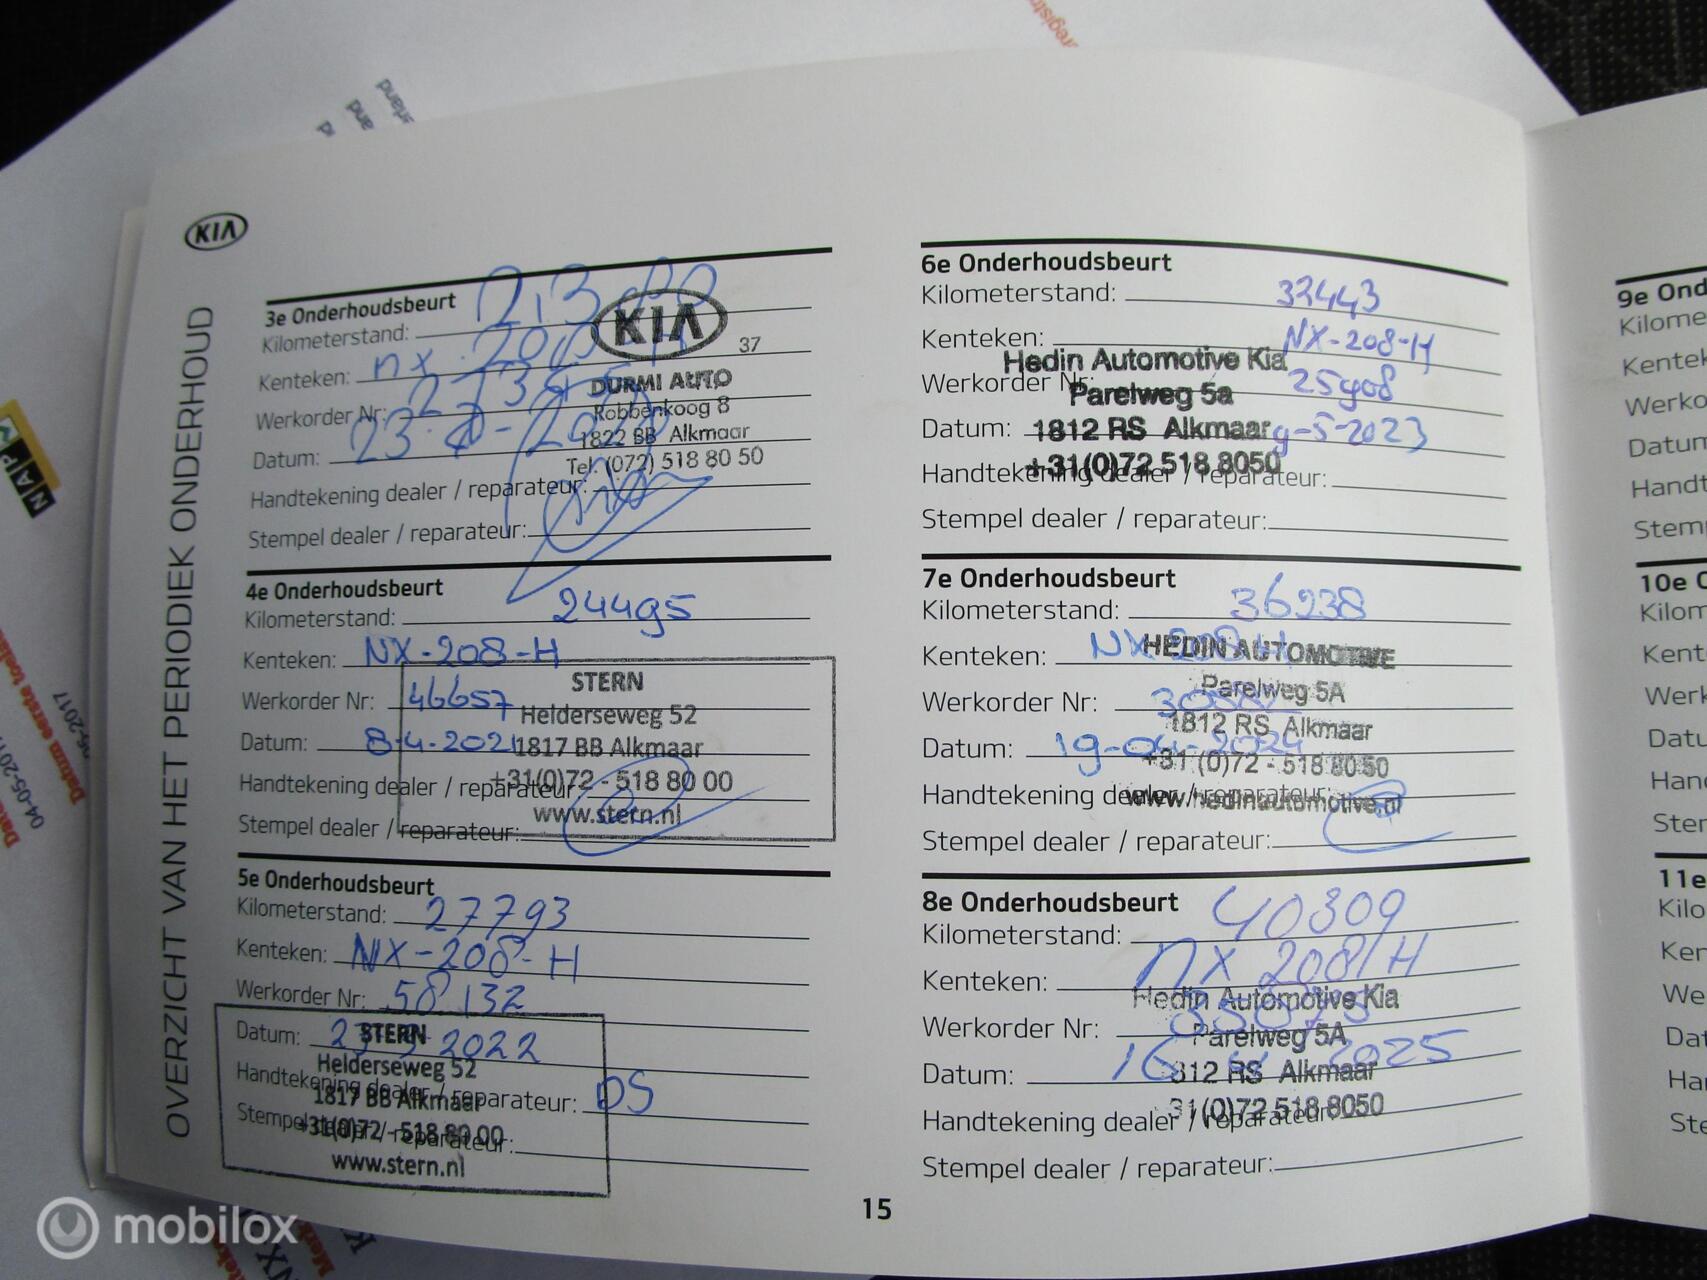 KIA
OVERZICHT VAN HET PERIODIEK ONDERHOUD
3e Onderhoudsbeurt
Kilometerstand:
Kenteken: nx 208 H
Werkorder Nr:
Datum:
Handtekening dealer / reparateur:
Stempel dealer / reparateur:
KIA
37
DURMI AUTO
Robbenkoog 8
1822 BB Alkmaar
Tel. (072) 518 80 50
4e Onderhoudsbeurt
Kilometerstand: 24495
Kenteken: NX-208-H
Werkorder Nr: 46657
Datum: 8-4-2021
Handtekening dealer / reparateur:
Stempel dealer / reparateur:
STERN
Helderseweg 52
1817 BB Alkmaar
+31(0)72 - 518 80 00
www.stern.nl
5e Onderhoudsbeurt
Kilometerstand: 27793
Kenteken: NX-208-H
Werkorder Nr: 58132
Datum: 2022
Handtekening dealer / reparateur: DS
Stempel dealer / reparateur:
STERN
Helderseweg 52
1817 BB Alkmaar
+31(0)72 - 518 80 00
www.stern.nl
6e Onderhoudsbeurt
Kilometerstand: 32443
Kenteken: NX-208-H
Werkorder Nr: 25908
Datum: 9-5-2023
Handtekening dealer / reparateur:
Stempel dealer / reparateur:
Hedin Automotive Kia
Parelweg 5a
1812 RS Alkmaar
+31(0)72 518 8050
7e Onderhoudsbeurt
Kilometerstand: 36238
Kenteken: NX-208-H
Werkorder Nr:
Datum: 19-04-2024
Handtekening dealer / reparateur:
Stempel dealer / reparateur:
HEDIN AUTOMOTIVE
Parelweg 5A
1812 RS Alkmaar
+31 (0)72 - 518 80 50
www.hedinautomotive.nl
8e Onderhoudsbeurt
Kilometerstand: 40309
Kenteken: NX 208 H
Werkorder Nr:
Datum: 16 2025
Handtekening dealer / reparateur:
Stempel dealer / reparateur:
Hedin Automotive Kia
Parelweg 5A
812 RS Alkmaar
31(0)72 518 8050
15
9e Ond
Kilome
Kentek
Werko
Datum
Handt
Stem
10e O
Kilom
Kent
Werk
Datu
Han
Ster
11e
Kilo
Ker
We
Dat
Ha
Ste
NAP
04-05-201
Datum eerste toela
05-2017
mobilox